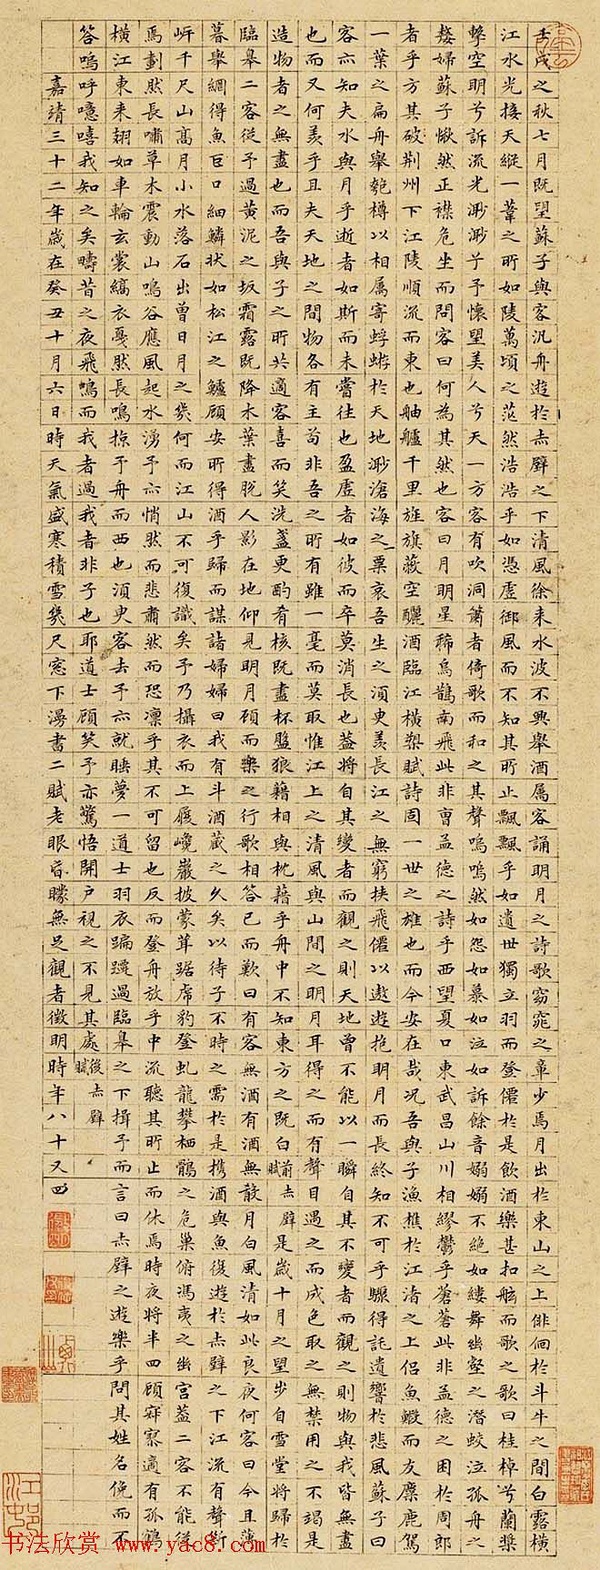 壬戌之秋七月既望蘇子與客汎舟遊於赤壁之下清風徐來水波不興舉酒屬客誦明月之詩歌窈窕之章少焉月出於東山之上徘徊於斗牛之間白露橫
江水光接天縱一葦之所如陵萬頃之茫然浩浩乎如憑虛御風而不知其所止飄飄乎如遺世獨立羽而登僊於是飲酒樂甚扣舷而歌之歌曰桂棹兮蘭槳
擊空明兮訴流光渺渺兮予懷望美人兮天一方客有吹洞簫者倚歌而和之其聲嗚嗚然如怨如慕如泣如訴餘音嫋嫋不絕如縷舞幽壑之潛蛟泣孤舟之
嫠婦蘇子愀然正襟危坐而問客曰何為其然也客曰月明星稀烏鵲南飛此非曹孟德之詩乎西望夏口東武昌山川相繆鬱乎蒼蒼此非孟德之困於周郎
者乎方其破荊州下江陵順流而東也舳艫千里旌旗蔽空釃酒臨江橫槊賦詩固一世之雄也而今安在哉況吾與子漁樵於江渚之上侶魚鰕而友麋鹿駕
一葉之扁舟舉匏樽以相屬寄蜉蝣於天地渺滄海之粟哀吾生之須臾羨長江之無窮挾飛僊以遨遊抱明月而長終知不可乎驟得託遺響於悲風蘇子曰
客亦知夫水與月乎逝者如斯而未嘗往也盈虛者如彼而卒莫消長也蓋將自其變者而觀之則天地曾不能以一瞬自其不變者而觀之則物與我皆無盡
也而又何羨乎且夫天地之間物各有主苟非吾之所有雖一毫而莫取惟江上之清風與山間之明月耳得之而有聲目遇之而成色取之無禁用之不竭是
造物者之無盡也而吾與子之所共適客喜而笑洗盞更酌肴核既盡杯盤狼藉相與枕藉乎舟中不知東方之既白前赤壁賦是歲十月之望步自雪堂將歸於
臨皋二客從予過黃泥之坂霜露既降木葉盡脫人影在地仰見明月顧而樂之行歌相答已而歎曰有客無酒有酒無殽月白風清如此良夜何客曰今且薄
暮舉網得魚巨口細鱗狀如松江之鱸顧安所得酒乎歸而謀諸婦婦曰我有斗酒藏之久矣以待子不時之需於是攜酒與魚復遊於赤壁之下江流有聲斷
岸千尺山高月小水落石出曾日月之幾何而江山不可復識矣予乃攝衣而上履巉巖披蒙茸踞虎豹登虬龍攀栖鶻之危巢俯馮夷之幽宮蓋二客不能從
焉劃然長嘯草木震動山鳴谷應風起水湧予亦悄然而悲肅然而恐凜乎其不可留也反而登舟放乎中流聽其所止而休焉時夜將半四顧寂寥適有孤鶴
橫江東來翅如車輪玄裳縞衣戛然長鳴掠予舟而西也須臾客去予亦就睡夢一道士羽衣蹁躚過臨皋之下揖予而言曰赤壁之遊樂乎問其姓名俛而不
答嗚呼噫嘻我知之矣疇昔之夜飛鳴而我者過我者非子也耶道士顧笑予亦驚悟開戶視之不見其處後赤壁賦
嘉靖三十二年歲在癸丑十月六日時天氣盛寒積雪幾尺窓下漫書二賦老眼昏矇無足觀者徵明時年八十又四
书法欣赏 www.yac8.com